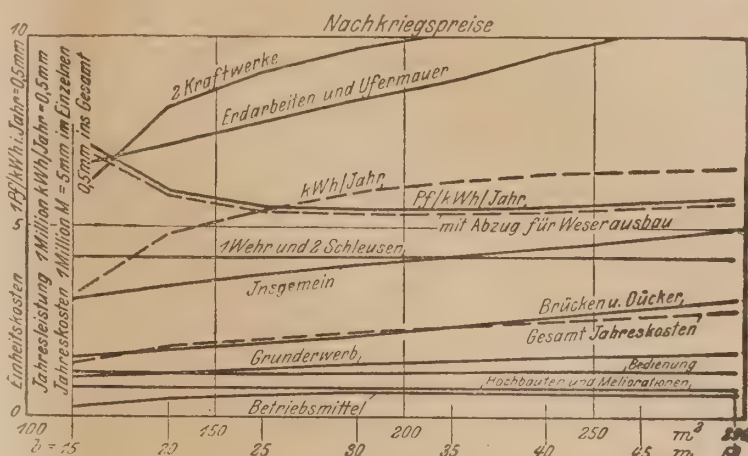 Nachkriegspreise
10
5
0
Einheitskosten 1Pf/kWh i. Jahr=0,5mm
Jahresleistung 1Million kWh/Jahr=0,5mm
Jahreskosten 1Million M = 5mm im Einzelnen
0,5mm ins Gesamt
2 Kraftwerke
Erdarbeiten und Ufermauer
kWh/Jahr,
Pf/kWh/Jahr,
mit Abzug für Weserausbau
1Wehr und 2 Schleusen,
Jnsgemein
Brücken u. Dücker,
Gesamt Jahreskosten
Grunderwerb,
Bedienung
Hochbauten und Meliorationen,
Betriebsmittel
100 150 200 250 m³
= 15 20 25 30 35 40 45 m